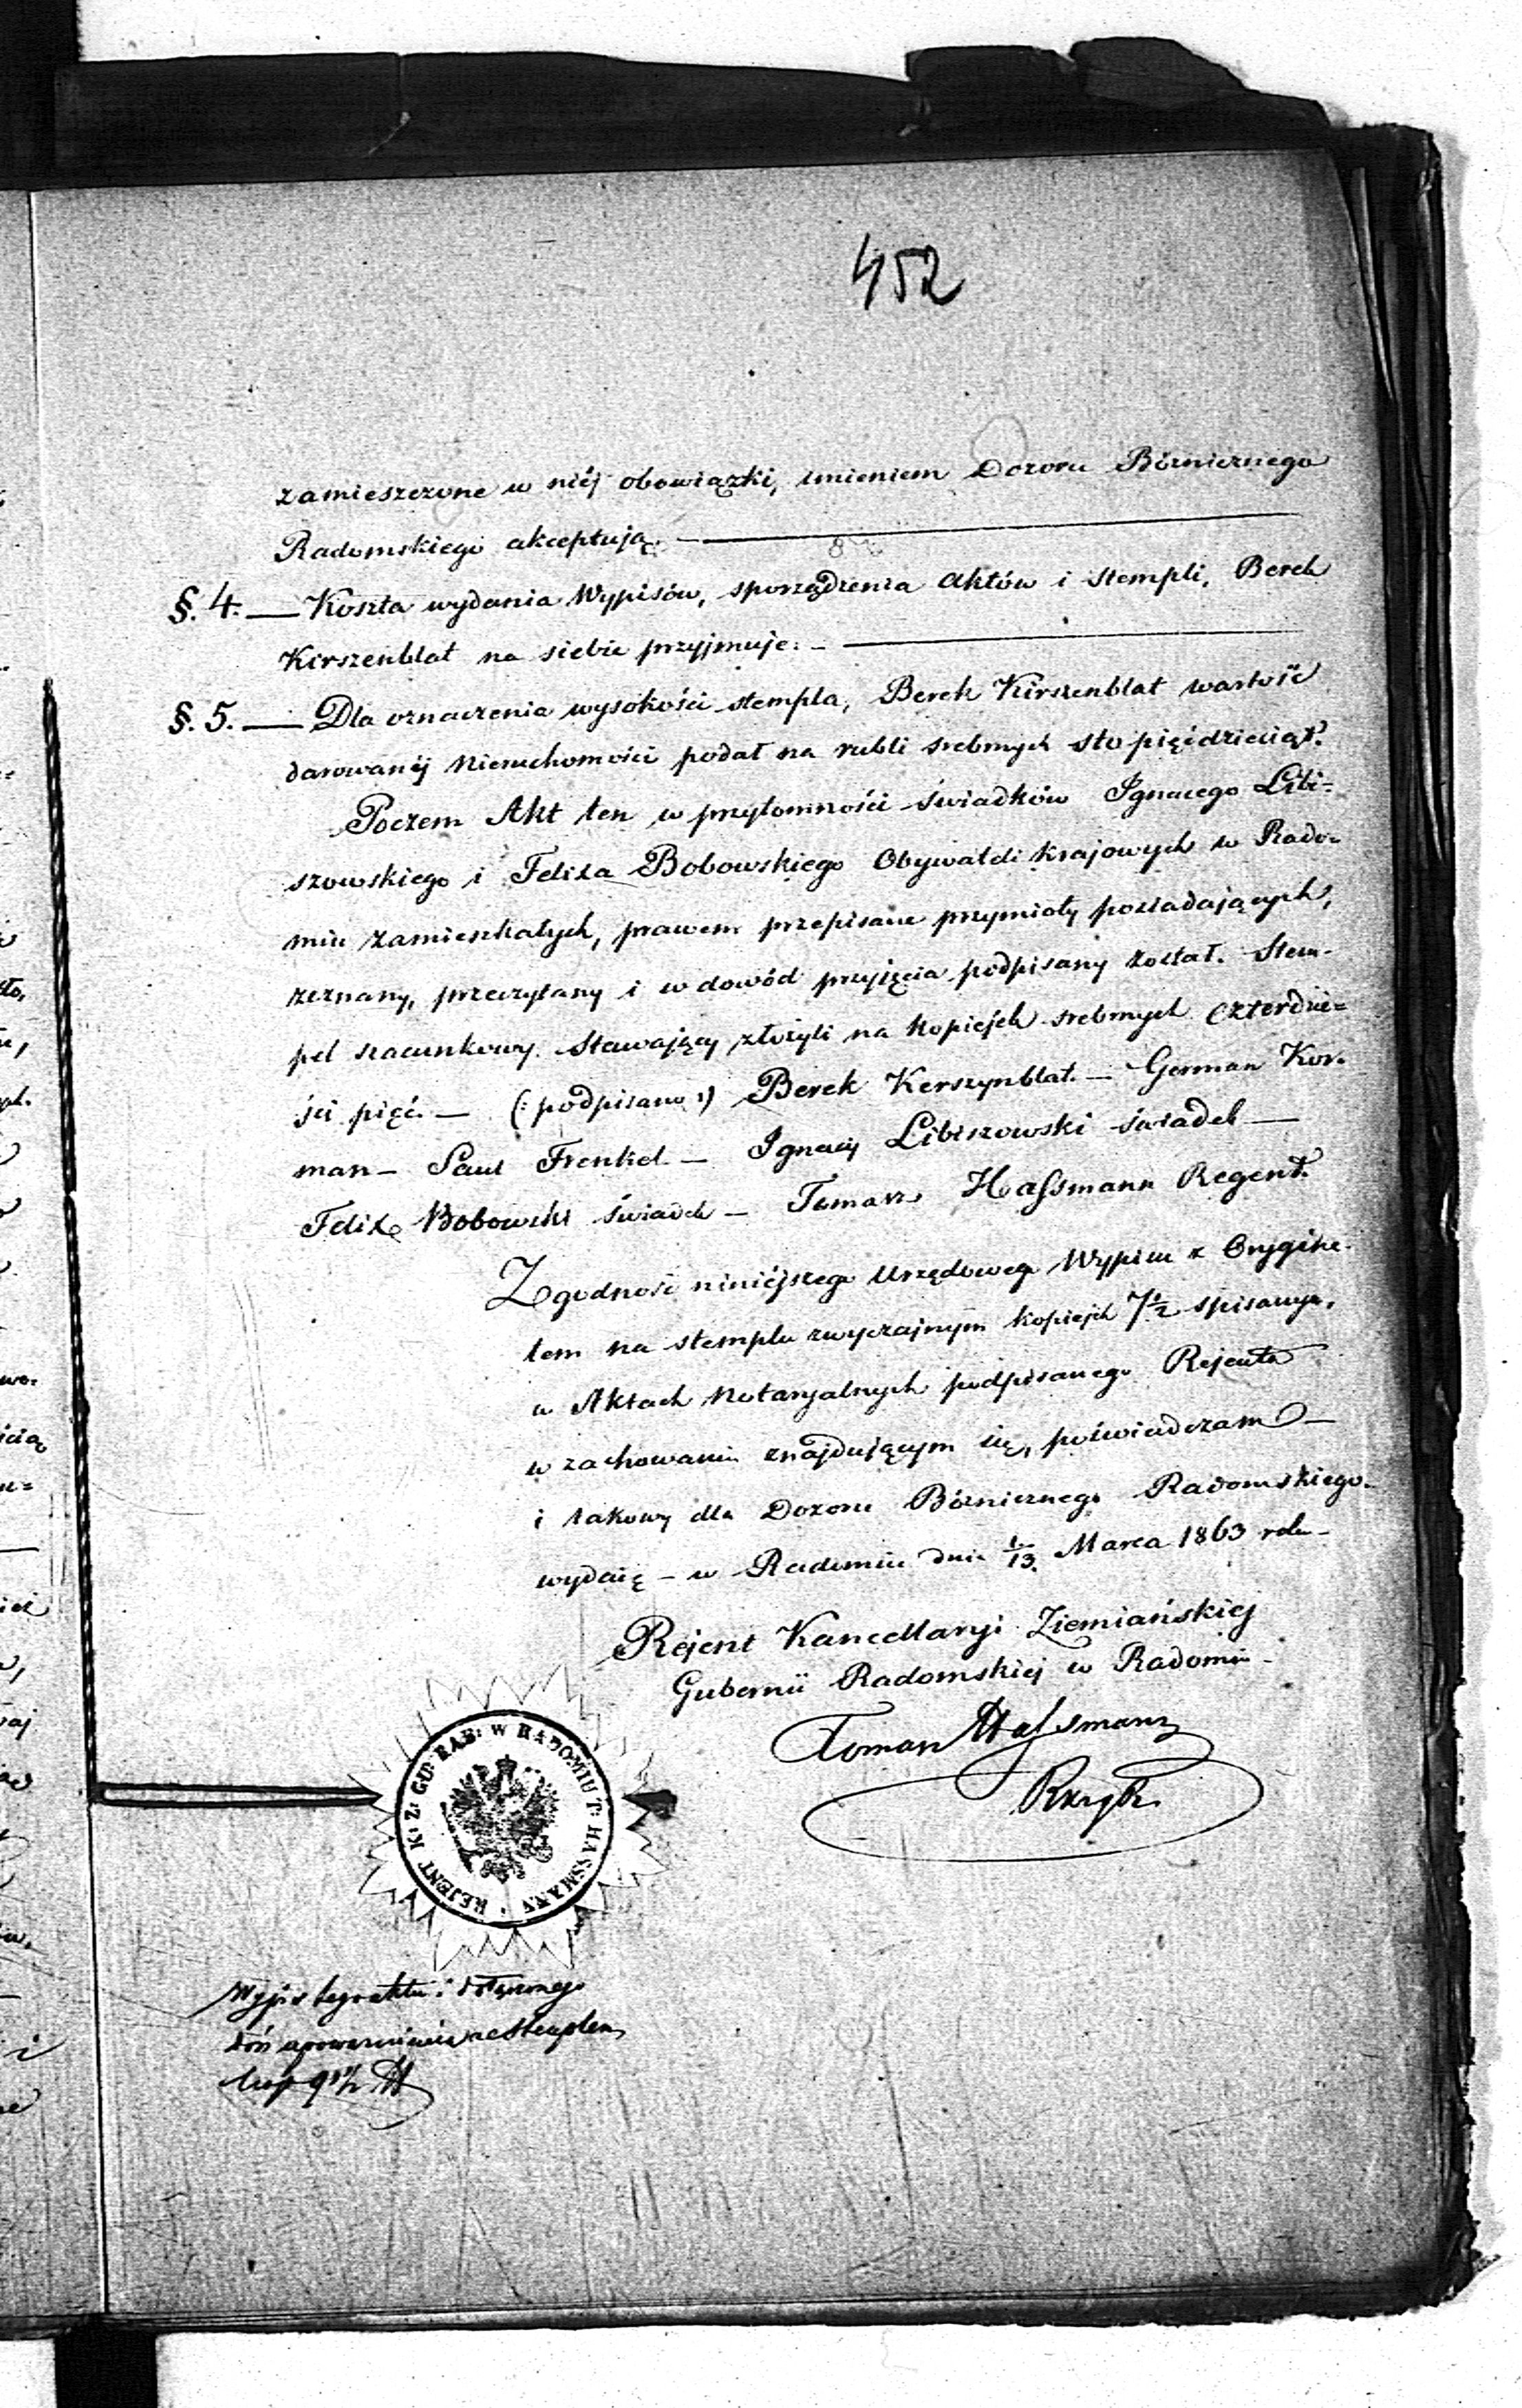 452
zamieszczone w niéj obowiązki, imieniem Dozoru Bóżnicznego
Radomskiego akceptują. —
§. 4. — Koszta wydania Wypisów, sporządzenia Aktów i stempli, Berek
Kirszenblat na siebie przyjmuje. —
§. 5. — Dla oznaczenia wysokości stempla, Berek Kirszenblat wartość
darowanéj Nieruchomości podał na rubli srebrnych sto pięćdziesiąt.
Poczem Akt ten w przytomności świadków Ignacego Libi=
szowskiego i Felixa Bobowskiego Obywateli krajowych w Rado-
miu zamieszkałych, prawem przepisane przymioty posiadających,
zeznany, przeczytany i w dowód przyjęcia podpisany został. Stem-
pel szacunkowy Stawający złożyli na kopiejek srebrnych czterdzie=
ści pięć. — (: podpisano :) Berek Kerszynblat. — German Kor-
man — Saul Frenkel — Ignacy Libiszowski świadek —
Felix Bobowski świadek — Tomasz Hassmann Regent.
Zgodność niniéjszego Urzędowego Wypisu z Orygina-
łem na stemplu zwyczajnym kopiejek 7½ spisanym,
w Aktach Notaryalnych podpisanego Rejenta
w zachowaniu znajdującym się, poświadczam —
i takowy dla Dozoru Bóżnicznego Radomskiego
wydaię — w Radomiu dnia 1/13 Marca 1863 roku —
Rejent Kancellaryi Ziemiańskiej
Gubernii Radomskiej w Radomiu
Tomasz Hassmann
REJENT K: Z: GUB: RAD: W RADOMIU T: HASSMANN
Wypis tego aktu i dołączonego
doń upoważnienia na stemplu